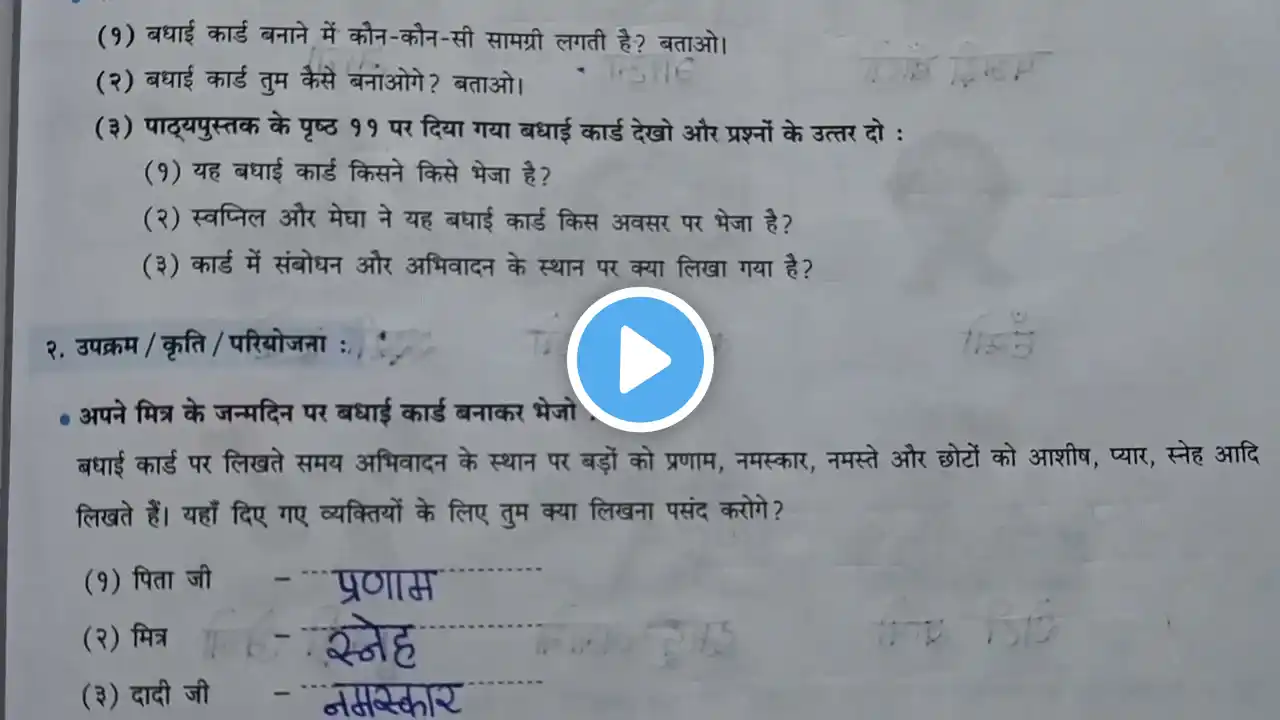 (१) बधाई कार्ड बनाने में कौन-कौन-सी सामग्री लगती है? बताओ।
(२) बधाई कार्ड तुम कैसे बनाओगे? बताओ।
(३) पाठ्यपुस्तक के पृष्ठ ११ पर दिया गया बधाई कार्ड देखो और प्रश्नों के उत्तर दो :
(१) यह बधाई कार्ड किसने किसे भेजा है?
(२) स्वप्निल और मेघा ने यह बधाई कार्ड किस अवसर पर भेजा है?
(३) कार्ड में संबोधन और अभिवादन के स्थान पर क्या लिखा गया है?
२. उपक्रम / कृति / परियोजना :
• अपने मित्र के जन्मदिन पर बधाई कार्ड बनाकर भेजो :
बधाई कार्ड पर लिखते समय अभिवादन के स्थान पर बड़ों को प्रणाम, नमस्कार, नमस्ते और छोटों को आशीष, प्यार, स्नेह आदि
लिखते हैं। यहाँ दिए गए व्यक्तियों के लिए तुम क्या लिखना पसंद करोगे?
(१) पिता जी – प्रणाम
(२) मित्र – स्नेह
(३) दादी जी – नमस्कार